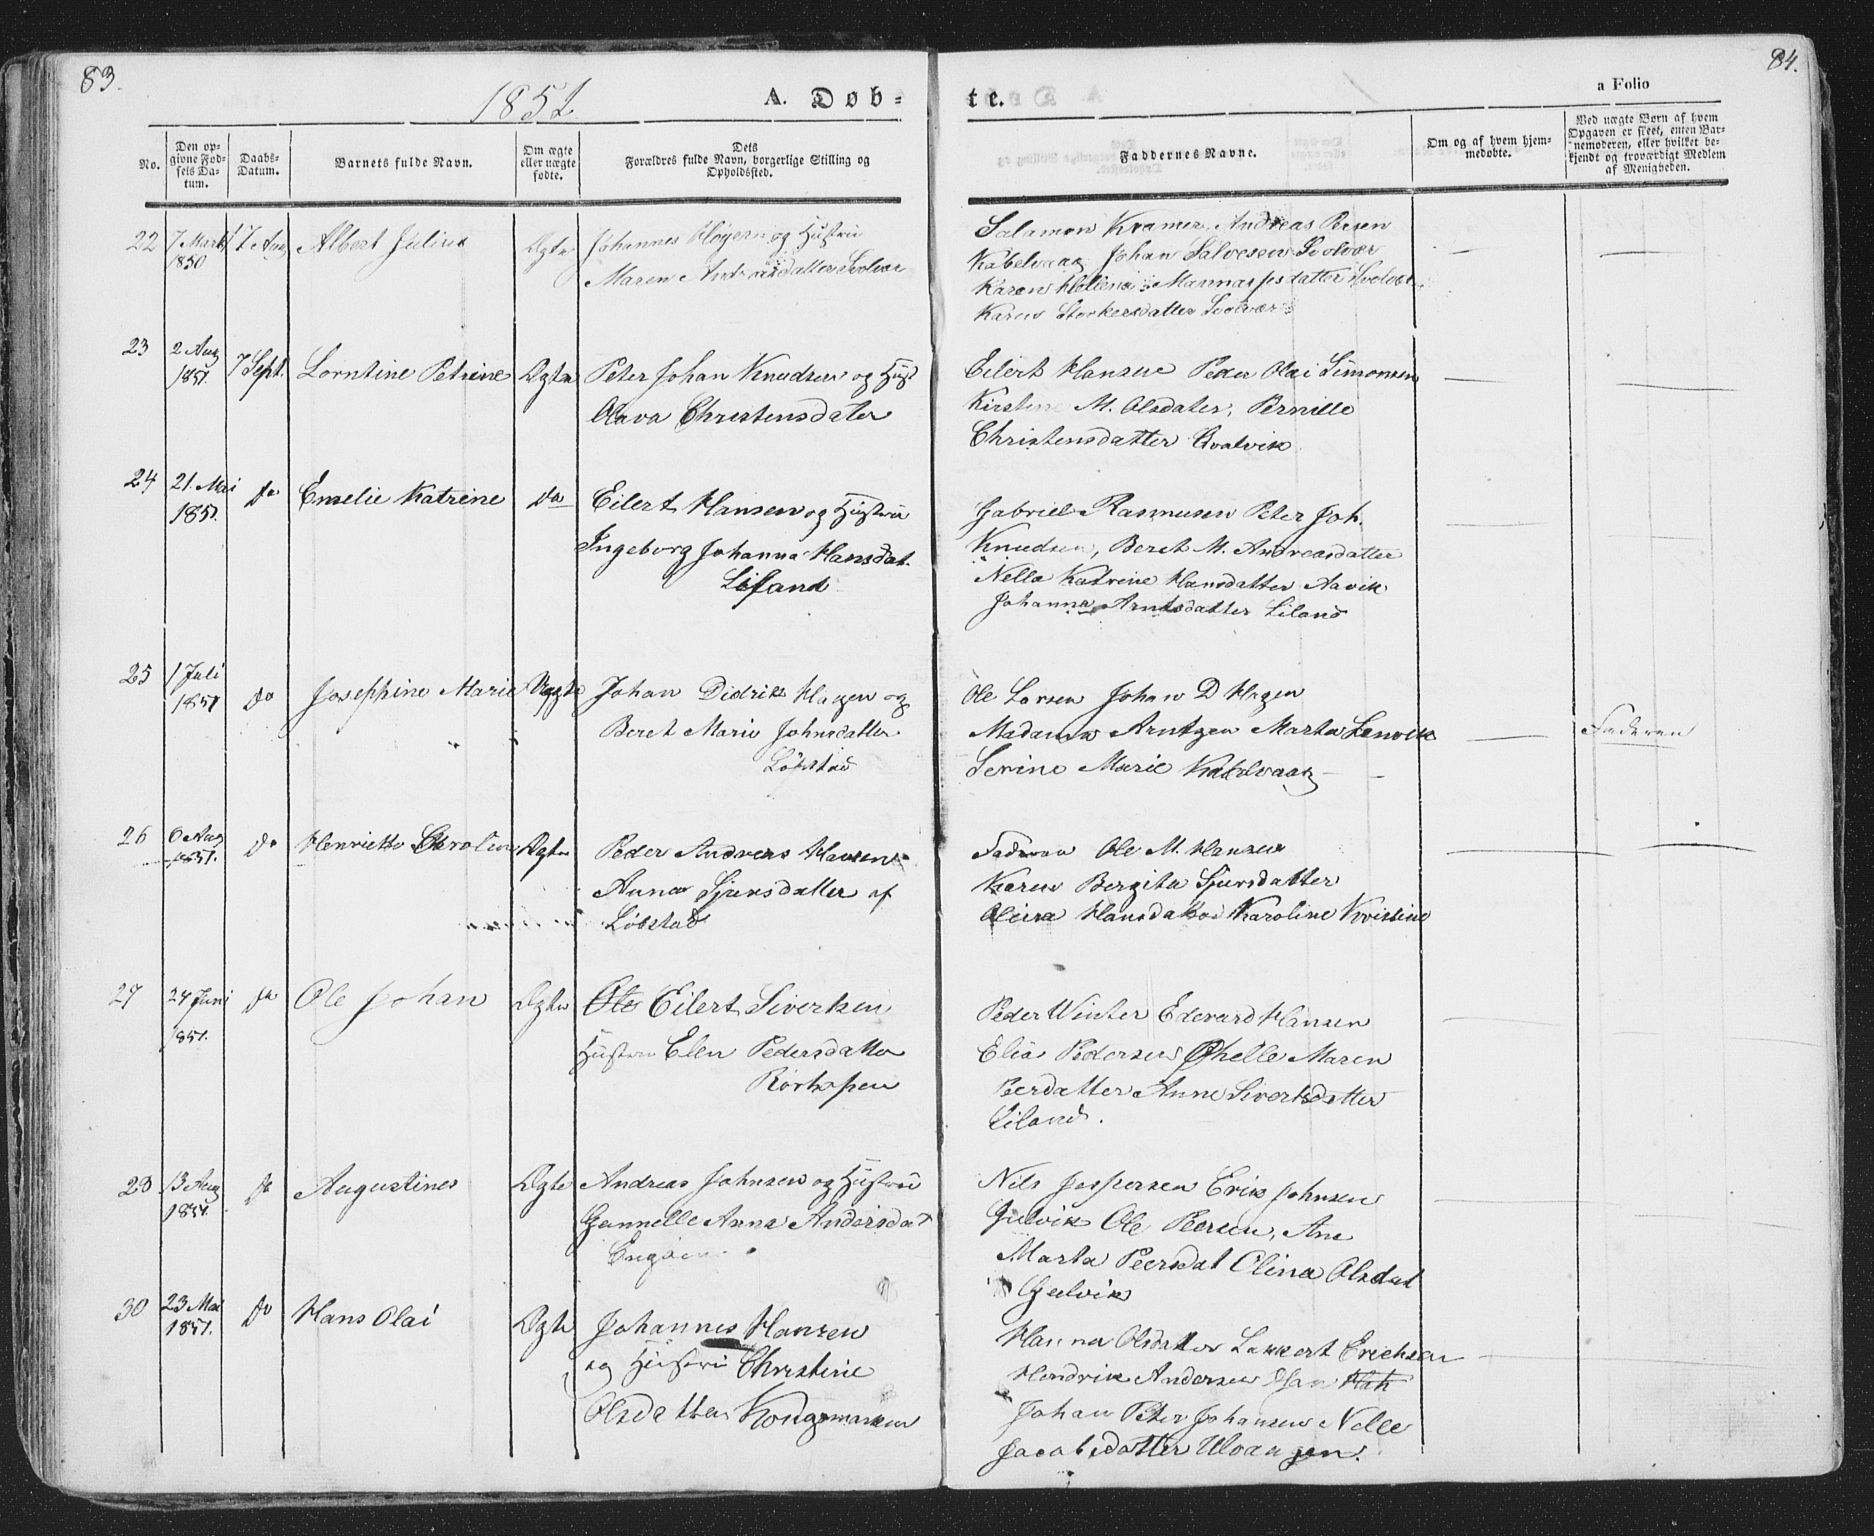 83.
84.
1851
A. Døb-
te.
a Folio
No.
Den op-
givne Fød-
sels Da-
tum.
Daabs-
Datum.
Barnets fulde Navn.
Om ægte
eller uægte
fødte.
Dets
Forældres fulde Navn, borgerlige Stilling og
Opholdssted.
Faddernes Navne.
Om og af hvem hjem-
medøbte.
Ved uægte Børn af hvem
Opgaven er skeet, enten Bar-
nemoderen, eller hvilket be-
kjendt og troværdigt Medlem
af Menigheden.
22 7 Marts 17 Aug Albert Julius Ægte Johannes og Hustrue
1850
Maren Andreasdatter Svolvær
Salamon Kramer, Andreas
Kabelvaag Johan Salvesen Svolvær
Karen Hellena Svolvær
Karen Svolvær
23 2 Aug 7 Sept. Lorntine Petrine Ægte Peter Johan Knudsen og Hust
1851.
Olava Christensdater
Eilert Hansen Peder Olai Simonsen
Kirstine M. Olsdater, Pernille
Christensdatter
24 21. Mai do Emelie Katrine do Eilert Hansen og Hustrue
1851.
Ingeborg Johanna Hansdat.
Liland
Gabriel Rasmusen Peter Joh.
Knudsen, Beret M. Andreasdatter
Nella Katrine Hansdatter Aavik
Johanna Arntsdatter Liland
25 1 Juli do Josephine Marie Uægte Johan Didrik Hagen og
1851
Beret Marie Johnsdatter
Løbstad
Ole Larsen Johan D Hagen
Madama Arntzen Marta Lenvik
Serine Marie Kabelvaag
Faderen
26 6 Aug do Henrikke Karoline Ægte Peder Andreas Hansen
1851.
Anna Sjursdatter af
Løbstad
Faderen Ole M. Hansen
Karen Bergita Sjursdatter
Hansdater Karoline Kristine
27 24 Juni do Ole Johan Ægte Ole Eilert Sivertsen
1851.
Hustru Elen Pedersdatter
Rørhopen
Peder Winter Edevard Hansen
Elias Pedersen Maren
Peerdatter Anne Sivertsdatter
Liland.
28 13 Aug do Augustines Ægte Andreas Johnsen og Hustrue
1851.
Gunnelle Anna Andersdat
Nils Jespersen Erik Johnsen
Gulvik Ole Peersen, Ane
Marta Peersdat Elina Olsdat
Gulvik
30 23 Mai do Hans Olai Ægte Johannes Hansen
1851.
og Hustru Christine
Olsdatter Kongsmarken
Hanna Olsdatter Erichsen
Hendrik Andersen
Johan Peter Johansen Nelle
Jacobsdatter Uvaagen.